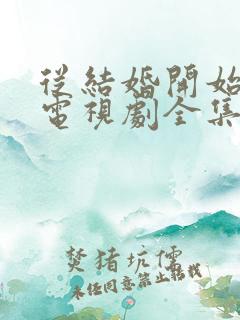 從結婚開始
電視劇全集
焚猪坑儒
未经同意禁止转载